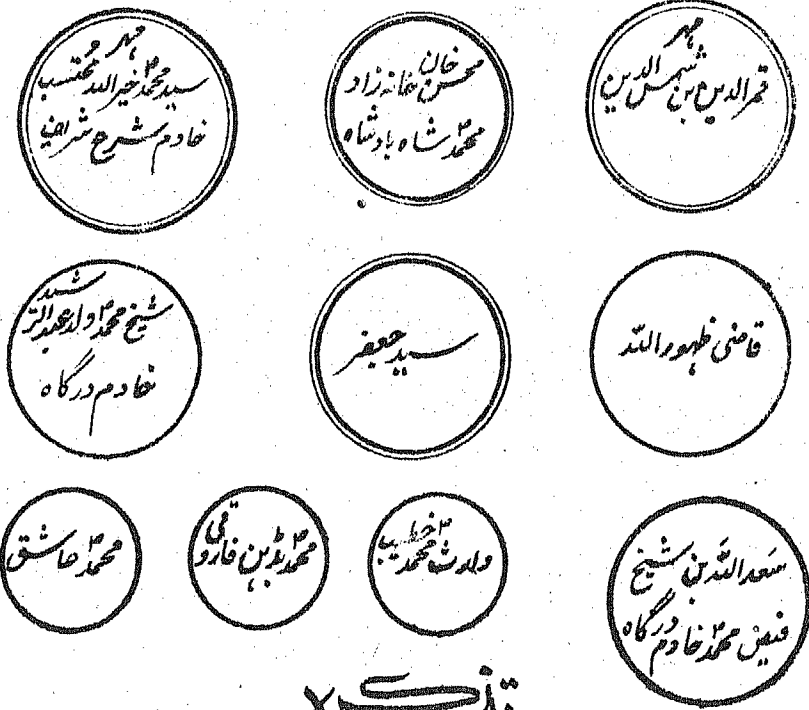 مہر
قمر الدین بن شمس الدین
محسن خان خانہ زاد
محمد شاہ بادشاہ
مہر
سید محمد خیر اللہ محتسب
خادم شرح شرافی
قاضی ظہور اللہ
سید جعفر
شیخ محمد ولد عبد الرشید
خادم درگاہ
سعد اللہ بن شیخ
فیض محمد خادم درگاہ
وارث محمد خطیب
محمد فاروقی
محمد عاشق